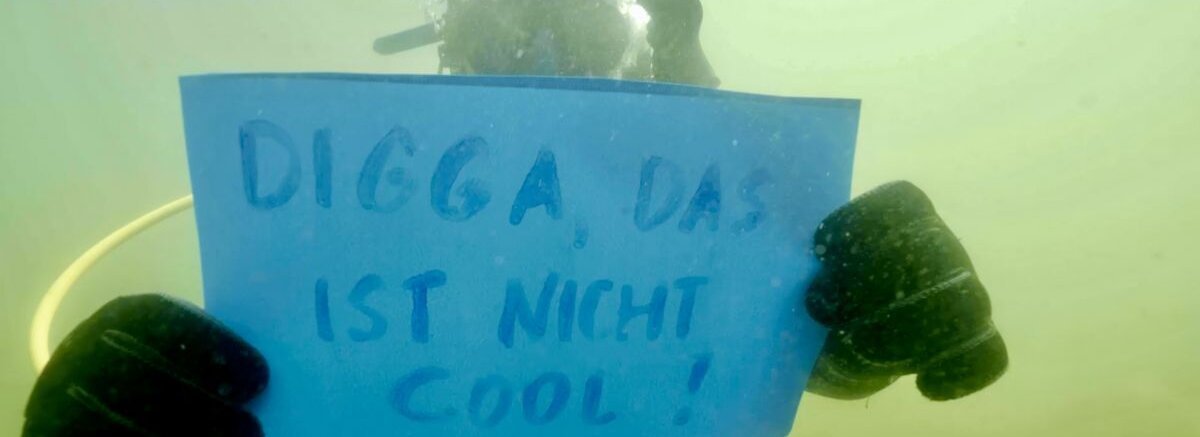 DIGGA, DAS
IST NICHT
COOL!